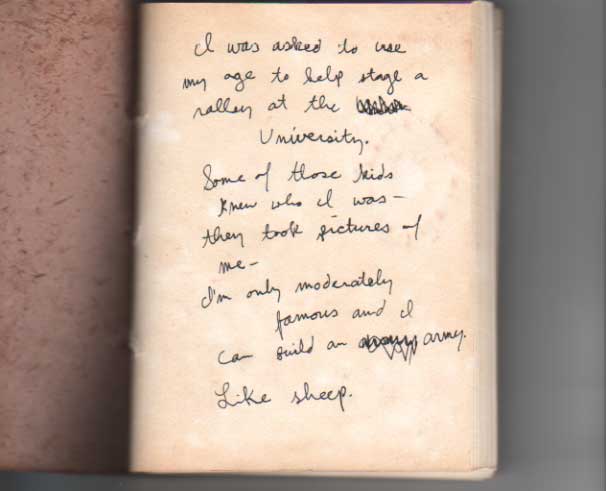 I was asked to use
my age to help stage a
ralley at the
University.
Some of those kids
knew who I was—
they took pictures of
me—
I'm only moderately
famous and I
can build an army.
Like sheep.